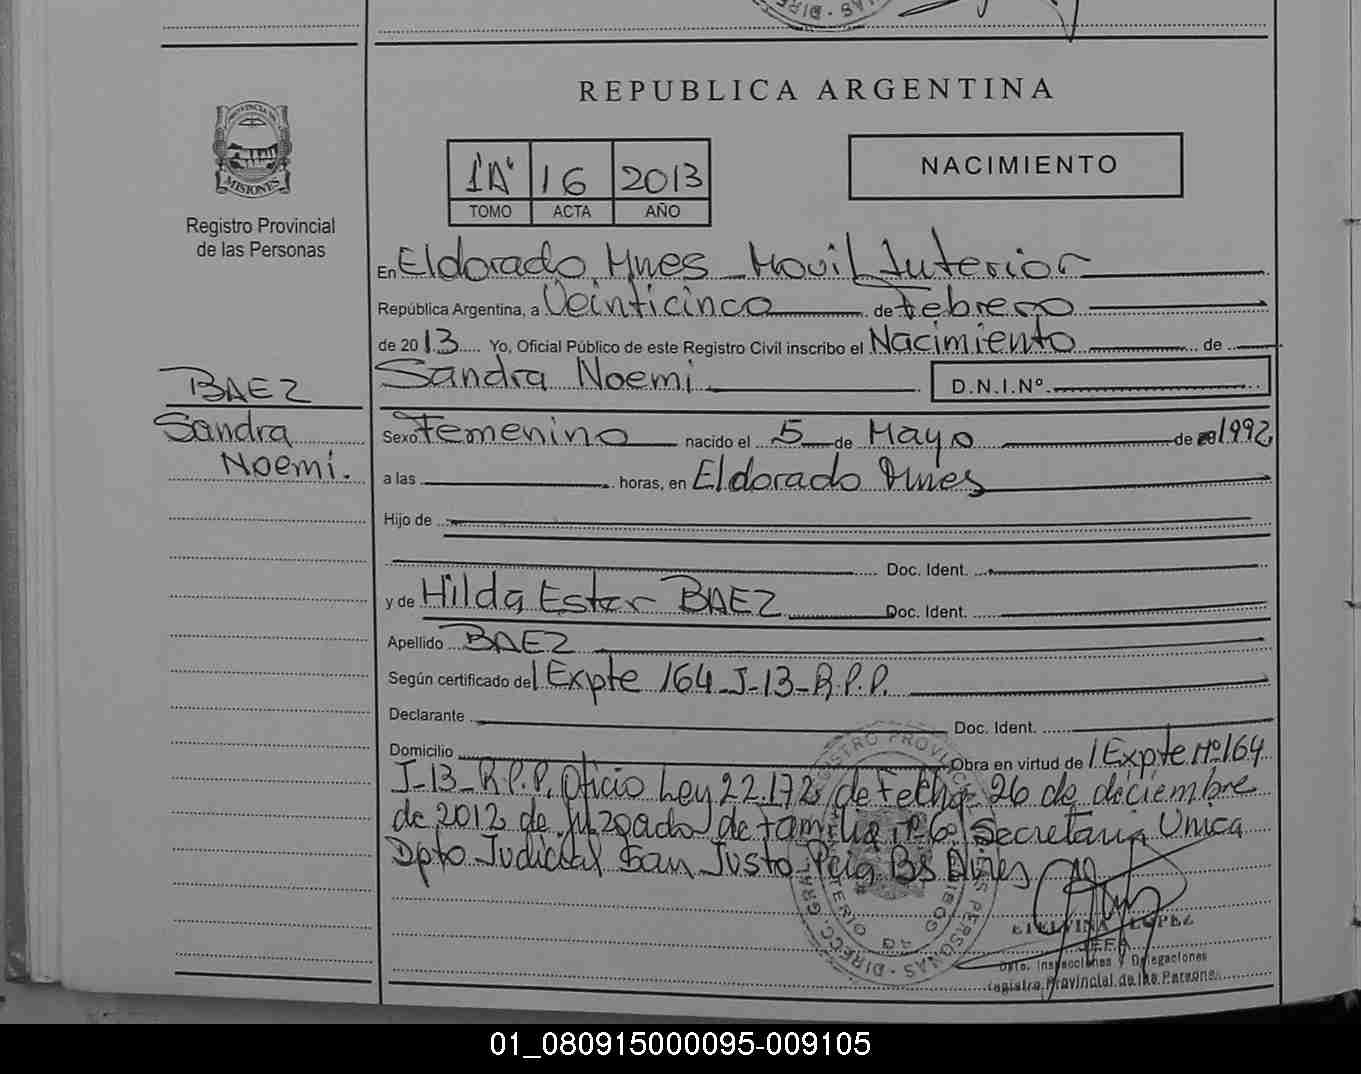 REPUBLICA ARGENTINA
PROVINCIA DE
MISIONES
Registro Provincial
de las Personas
1"A" 16 2013
TOMO ACTA AÑO
NACIMIENTO
En Eldorado Mnes Movil Interior
República Argentina, a Veinticinco de Febrero
de 2013 Yo, Oficial Público de este Registro Civil inscribo el Nacimiento de
Sandra Noemi D.N.I.Nº
BAEZ
Sandra
Noemi.
Sexo Femenino nacido el 5 de Mayo de 1992
a las horas, en Eldorado Mnes
Hijo de
Doc. Ident.
y de Hilda Ester BAEZ Doc. Ident.
Apellido BAEZ
Según certificado del Expte 164-J-13-R.P.P.
Declarante Doc. Ident.
Domicilio Obra en virtud de Expte Nº 164
J-13-R.P.P. Oficio Ley 22.172 de Fecha 26 de diciembre
de 2012 de Juzgado de familia Nº 6 Secretaria Unica
Dpto Judicial San Justo Pcia Bs Aires
LOPEZ
JEFA
Dpto. Inspecciones y Delegaciones
Registro Provincial de las Personas
01_080915000095-009105